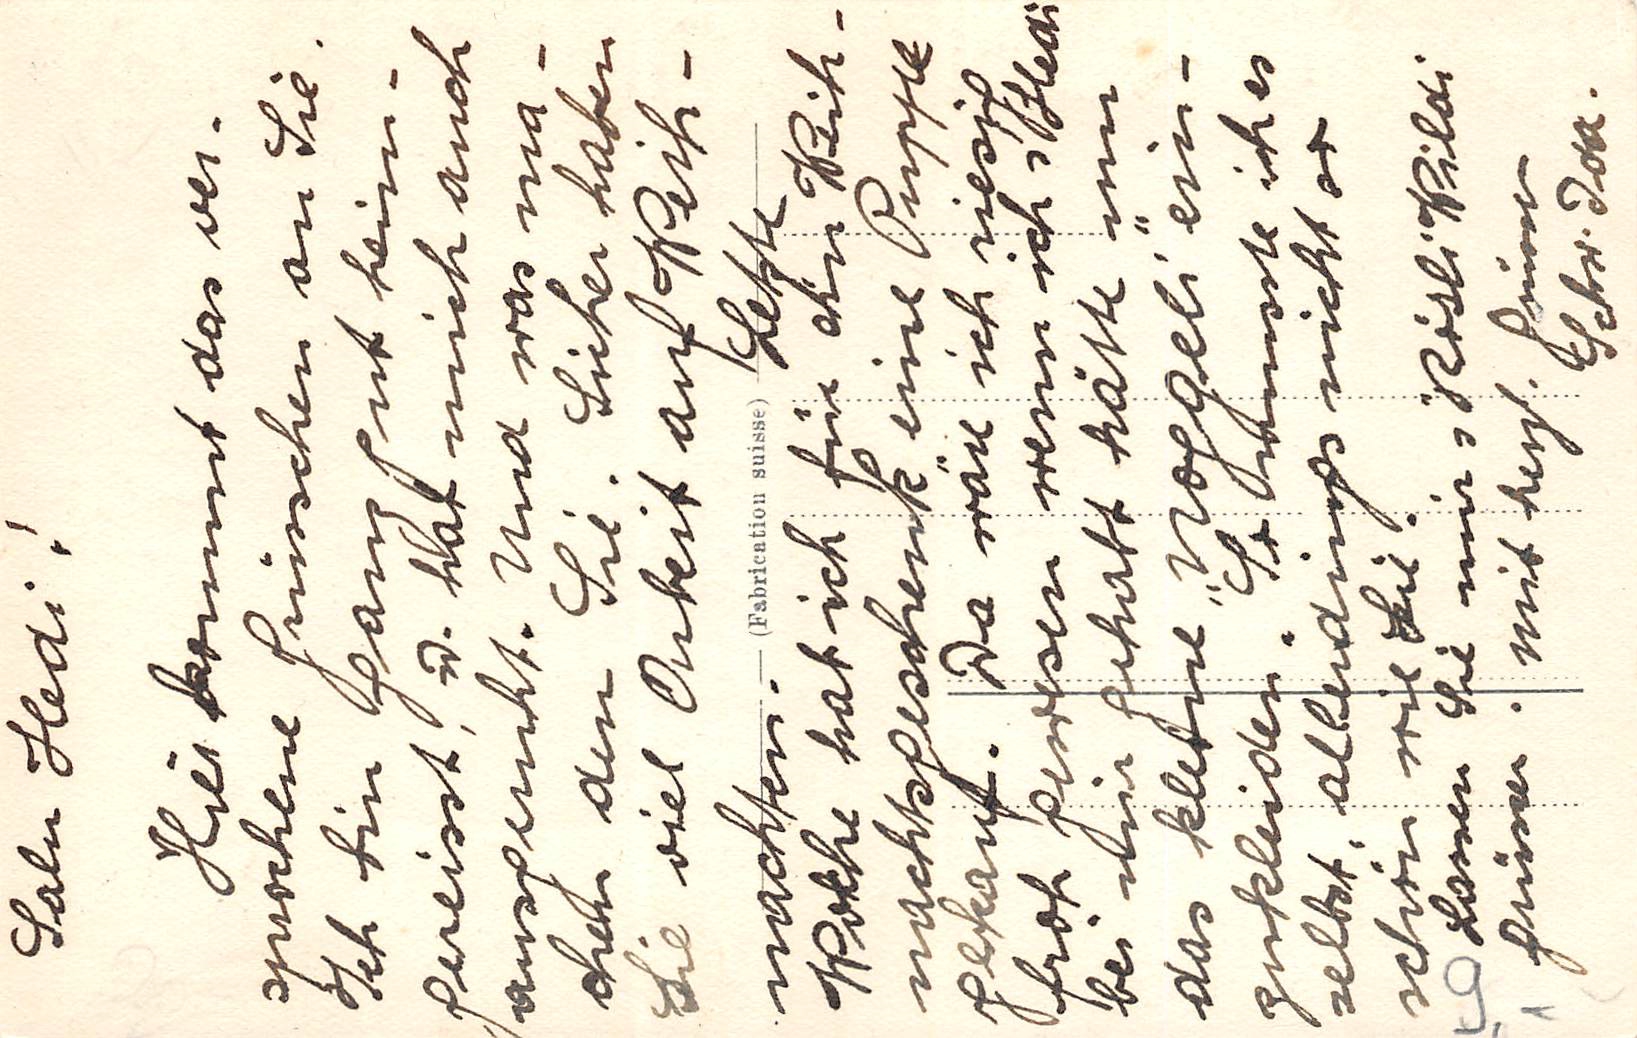 Salu Hedi!
Hier kommt das ver-
sprochene Grüsschen an Sie.
Ich bin ganz gut heim-
gereist, u. hat mich auch
ausgeruht. Und was ma-
chen den Sie. Sicher haben
Sie viel Arbeit auf Weih-
nachten. Letzte
Woche hat ich für den Weih-
nachtsgeschenk eine Puppe
gekauft. Da wäre ich riesig
froh gewesen wenn ich s'Hedi
bei mir gehabt hätte um
das kleine "Vögeli" ein-
zukleiden. So konnte ich es
selbst, allerdings nicht so
schön wie Sie.
Lassen Sie mir s'Rösli Wildi
grüssen. Mit herzl. Grüssen
Schw. Dora.
(Fabrication suisse)